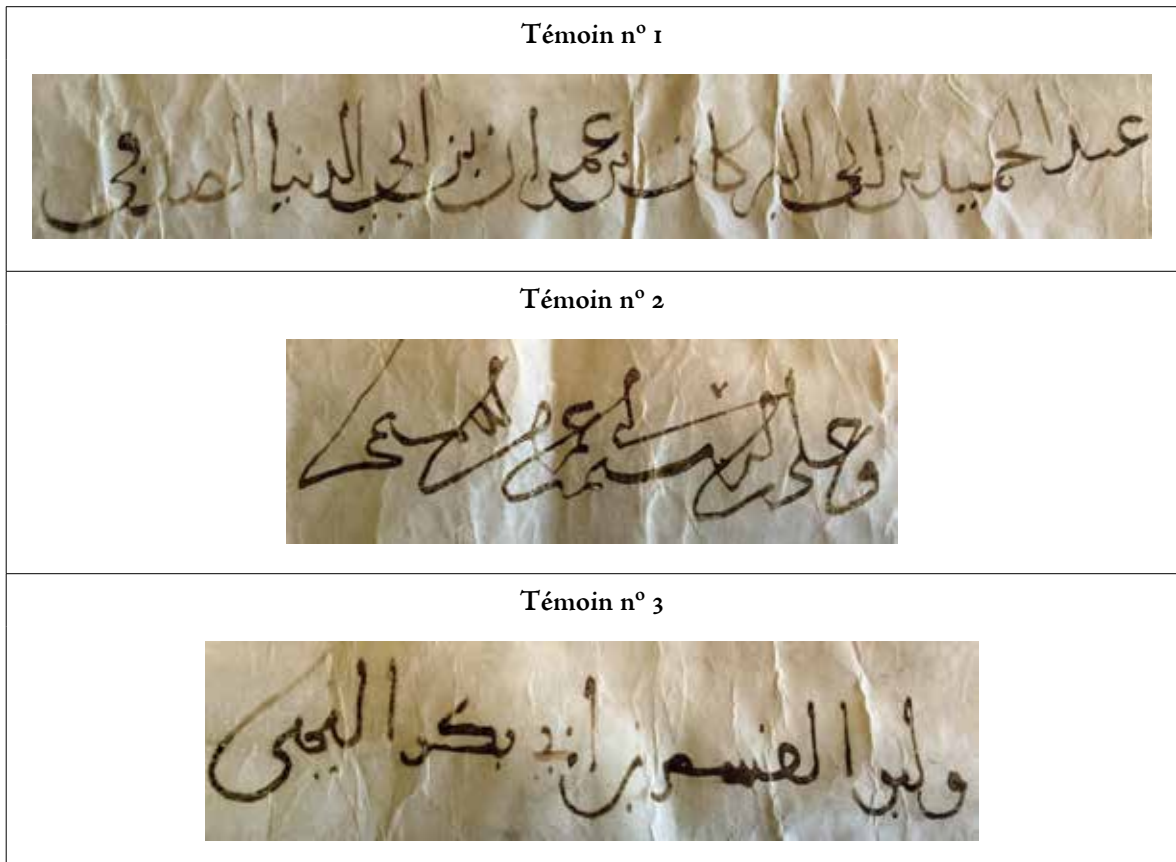 Témoin nº 1
عبد الحميد بن ابي البركات بن عمران بن ابي الدنيا الصدفي
Témoin nº 2
وعلي التميمي
Témoin nº 3
وابو القسم بن ابي بكر اليمني